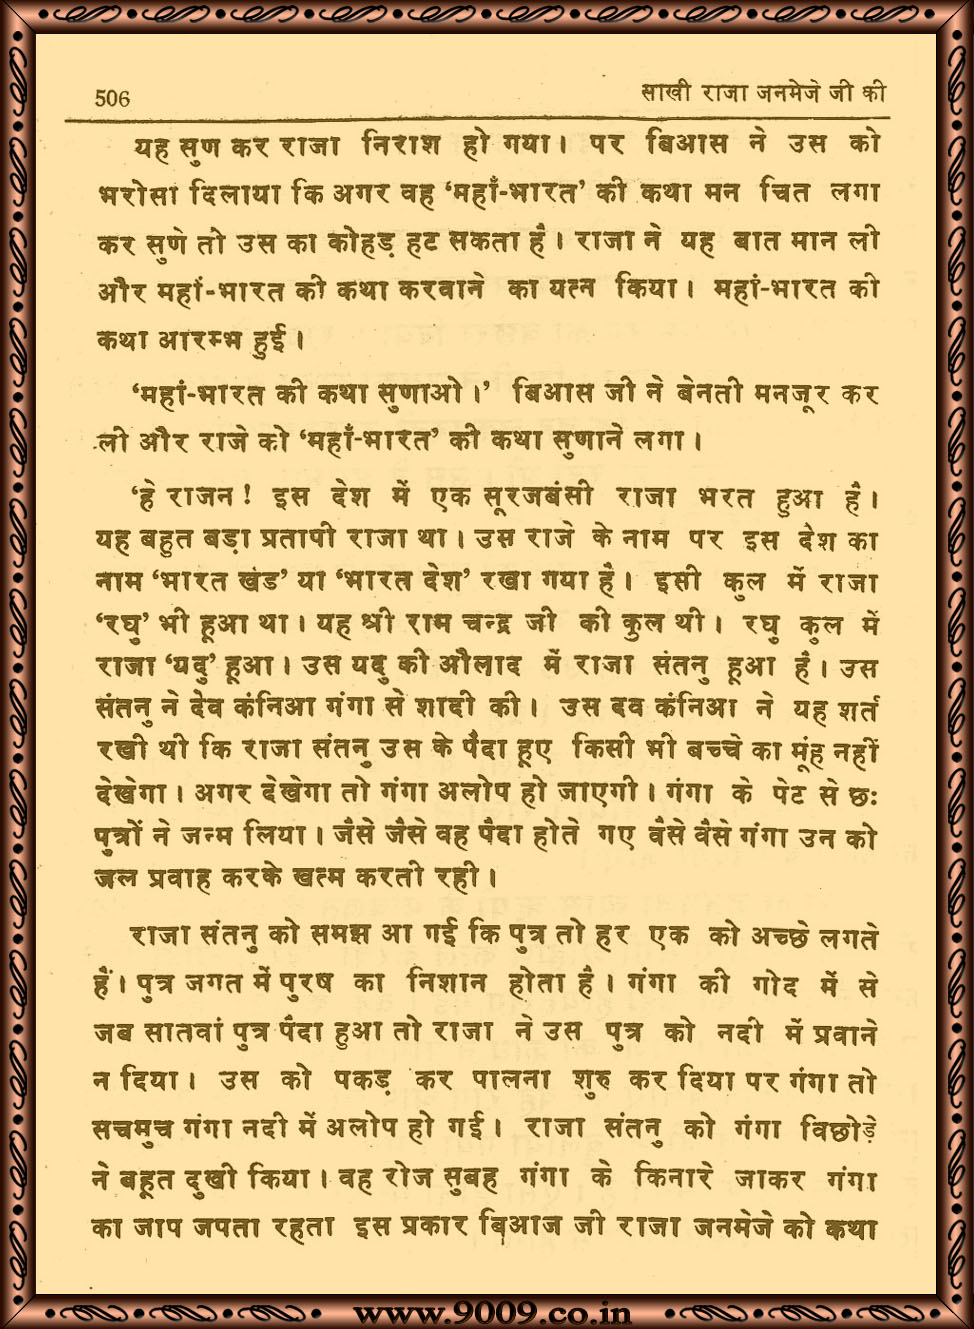 506 साखी राजा जनमेजे जी की
यह सुण कर राजा निराश हो गया। पर बिआस ने उस को
भरोसा दिलाया कि अगर वह ‘महाँ-भारत’ की कथा मन चित लगा
कर सुणे तो उस का कोहड़ हट सकता है। राजा ने यह बात मान ली
और महां-भारत की कथा करवाने का यत्न किया। महां-भारत की
कथा आरम्भ हुई।
‘महां-भारत की कथा सुणाओ।’ बिआस जी ने बेनती मनजूर कर
ली और राजे को ‘महाँ-भारत’ की कथा सुणाने लगा।
‘हे राजन! इस देश में एक सूरजबंसी राजा भरत हुआ है।
यह बहुत बड़ा प्रतापी राजा था। उस राजे के नाम पर इस देश का
नाम ‘भारत खंड’ या ‘भारत देश’ रखा गया है। इसी कुल में राजा
‘रघु’ भी हूआ था। यह श्री राम चन्द्र जी की कुल थी। रघु कुल में
राजा ‘यदु’ हूआ। उस यदु की औलाद में राजा संतनु हूआ है। उस
संतनु ने देव कंनिआ गंगा से शादी की। उस दव कंनिआ ने यह शर्त
रखी थी कि राजा संतनु उस के पैदा हूए किसी भी बच्चे का मूंह नहीं
देखेगा। अगर देखेगा तो गंगा अलोप हो जाएगी। गंगा के पेट से छः
पुत्रों ने जन्म लिया। जैसे जैसे वह पैदा होते गए वैसे वैसे गंगा उन को
जल प्रवाह करके खत्म करती रही।
राजा संतनु को समझ आ गई कि पुत्र तो हर एक को अच्छे लगते
हैं। पुत्र जगत में पुरष का निशान होता है। गंगा की गोद में से
जब सातवां पुत्र पैदा हुआ तो राजा ने उस पुत्र को नदी में प्रवाने
न दिया। उस को पकड़ कर पालना शुरु कर दिया पर गंगा तो
सचमुच गंगा नदी में अलोप हो गई। राजा संतनु को गंगा विछोड़े
ने बहूत दुखी किया। वह रोज सुबह गंगा के किनारे जाकर गंगा
का जाप जपता रहता इस प्रकार बिआज जी राजा जनमेजे को कथा
www.9009.co.in